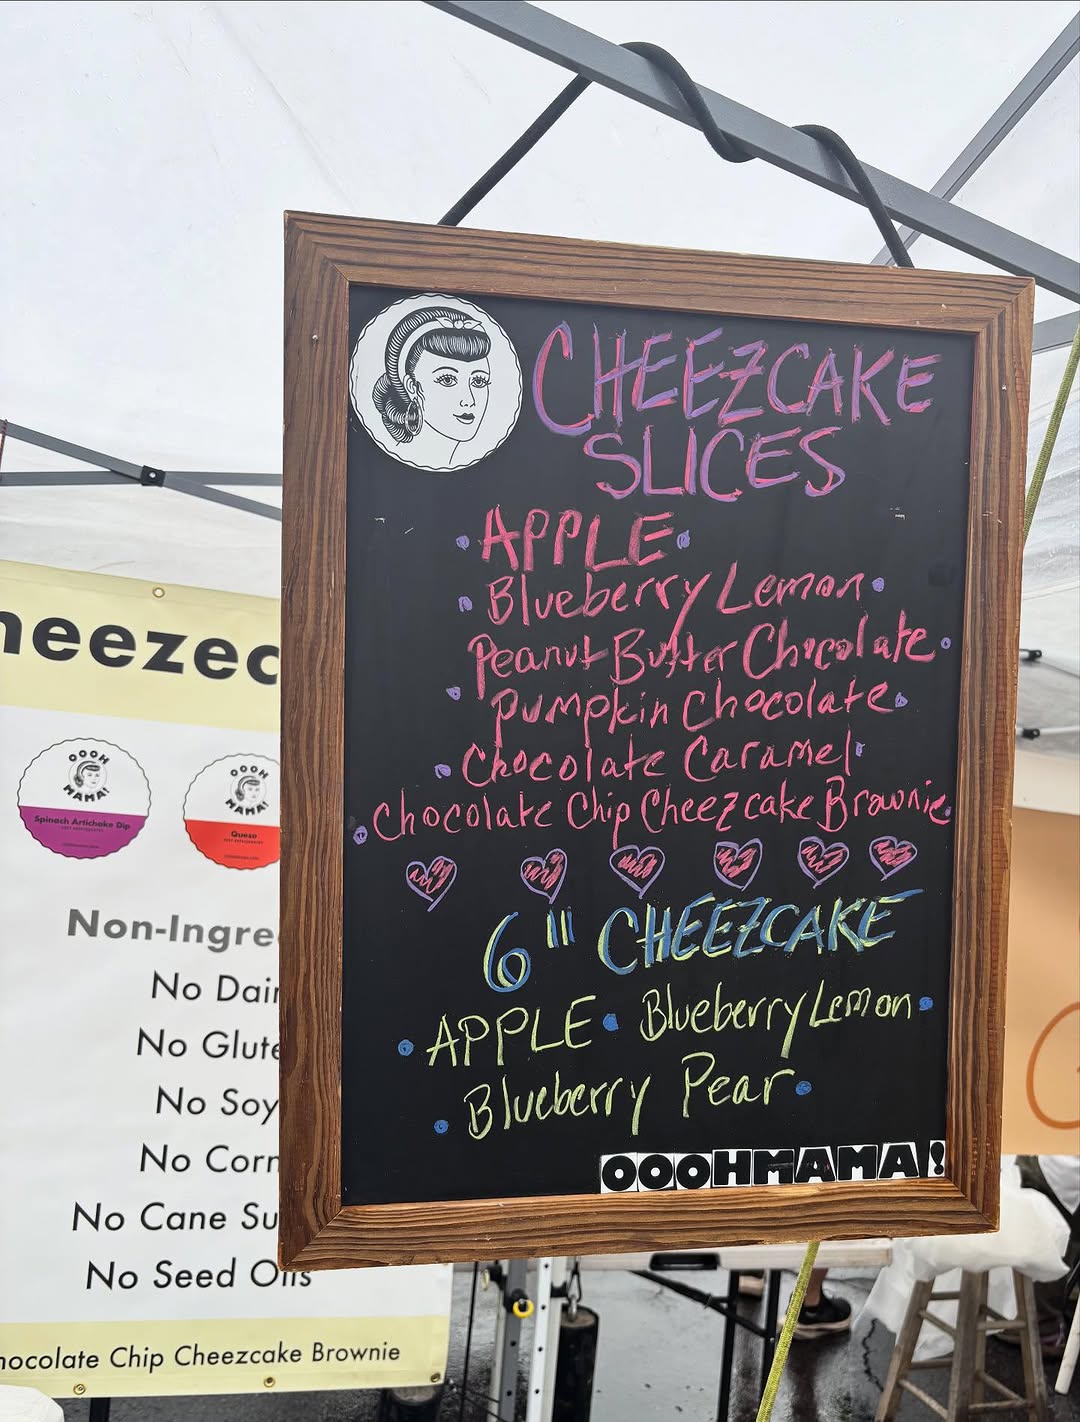 CHEEZCAKE
SLICES
APPLE
Blueberry Lemon
Peanut Butter Chocolate
Pumpkin Chocolate
Chocolate Caramel
Chocolate Chip Cheezcake Brownie
6" CHEEZCAKE
APPLE • Blueberry Lemon
Blueberry Pear
OOOHMAMA!
heezec
OOOH
MAMA!
Spinach Artichoke Dip
OOOH
MAMA!
Queso
Non-Ingre
No Dair
No Glute
No Soy
No Corn
No Cane Su
No Seed Oils
hocolate Chip Cheezcake Brownie